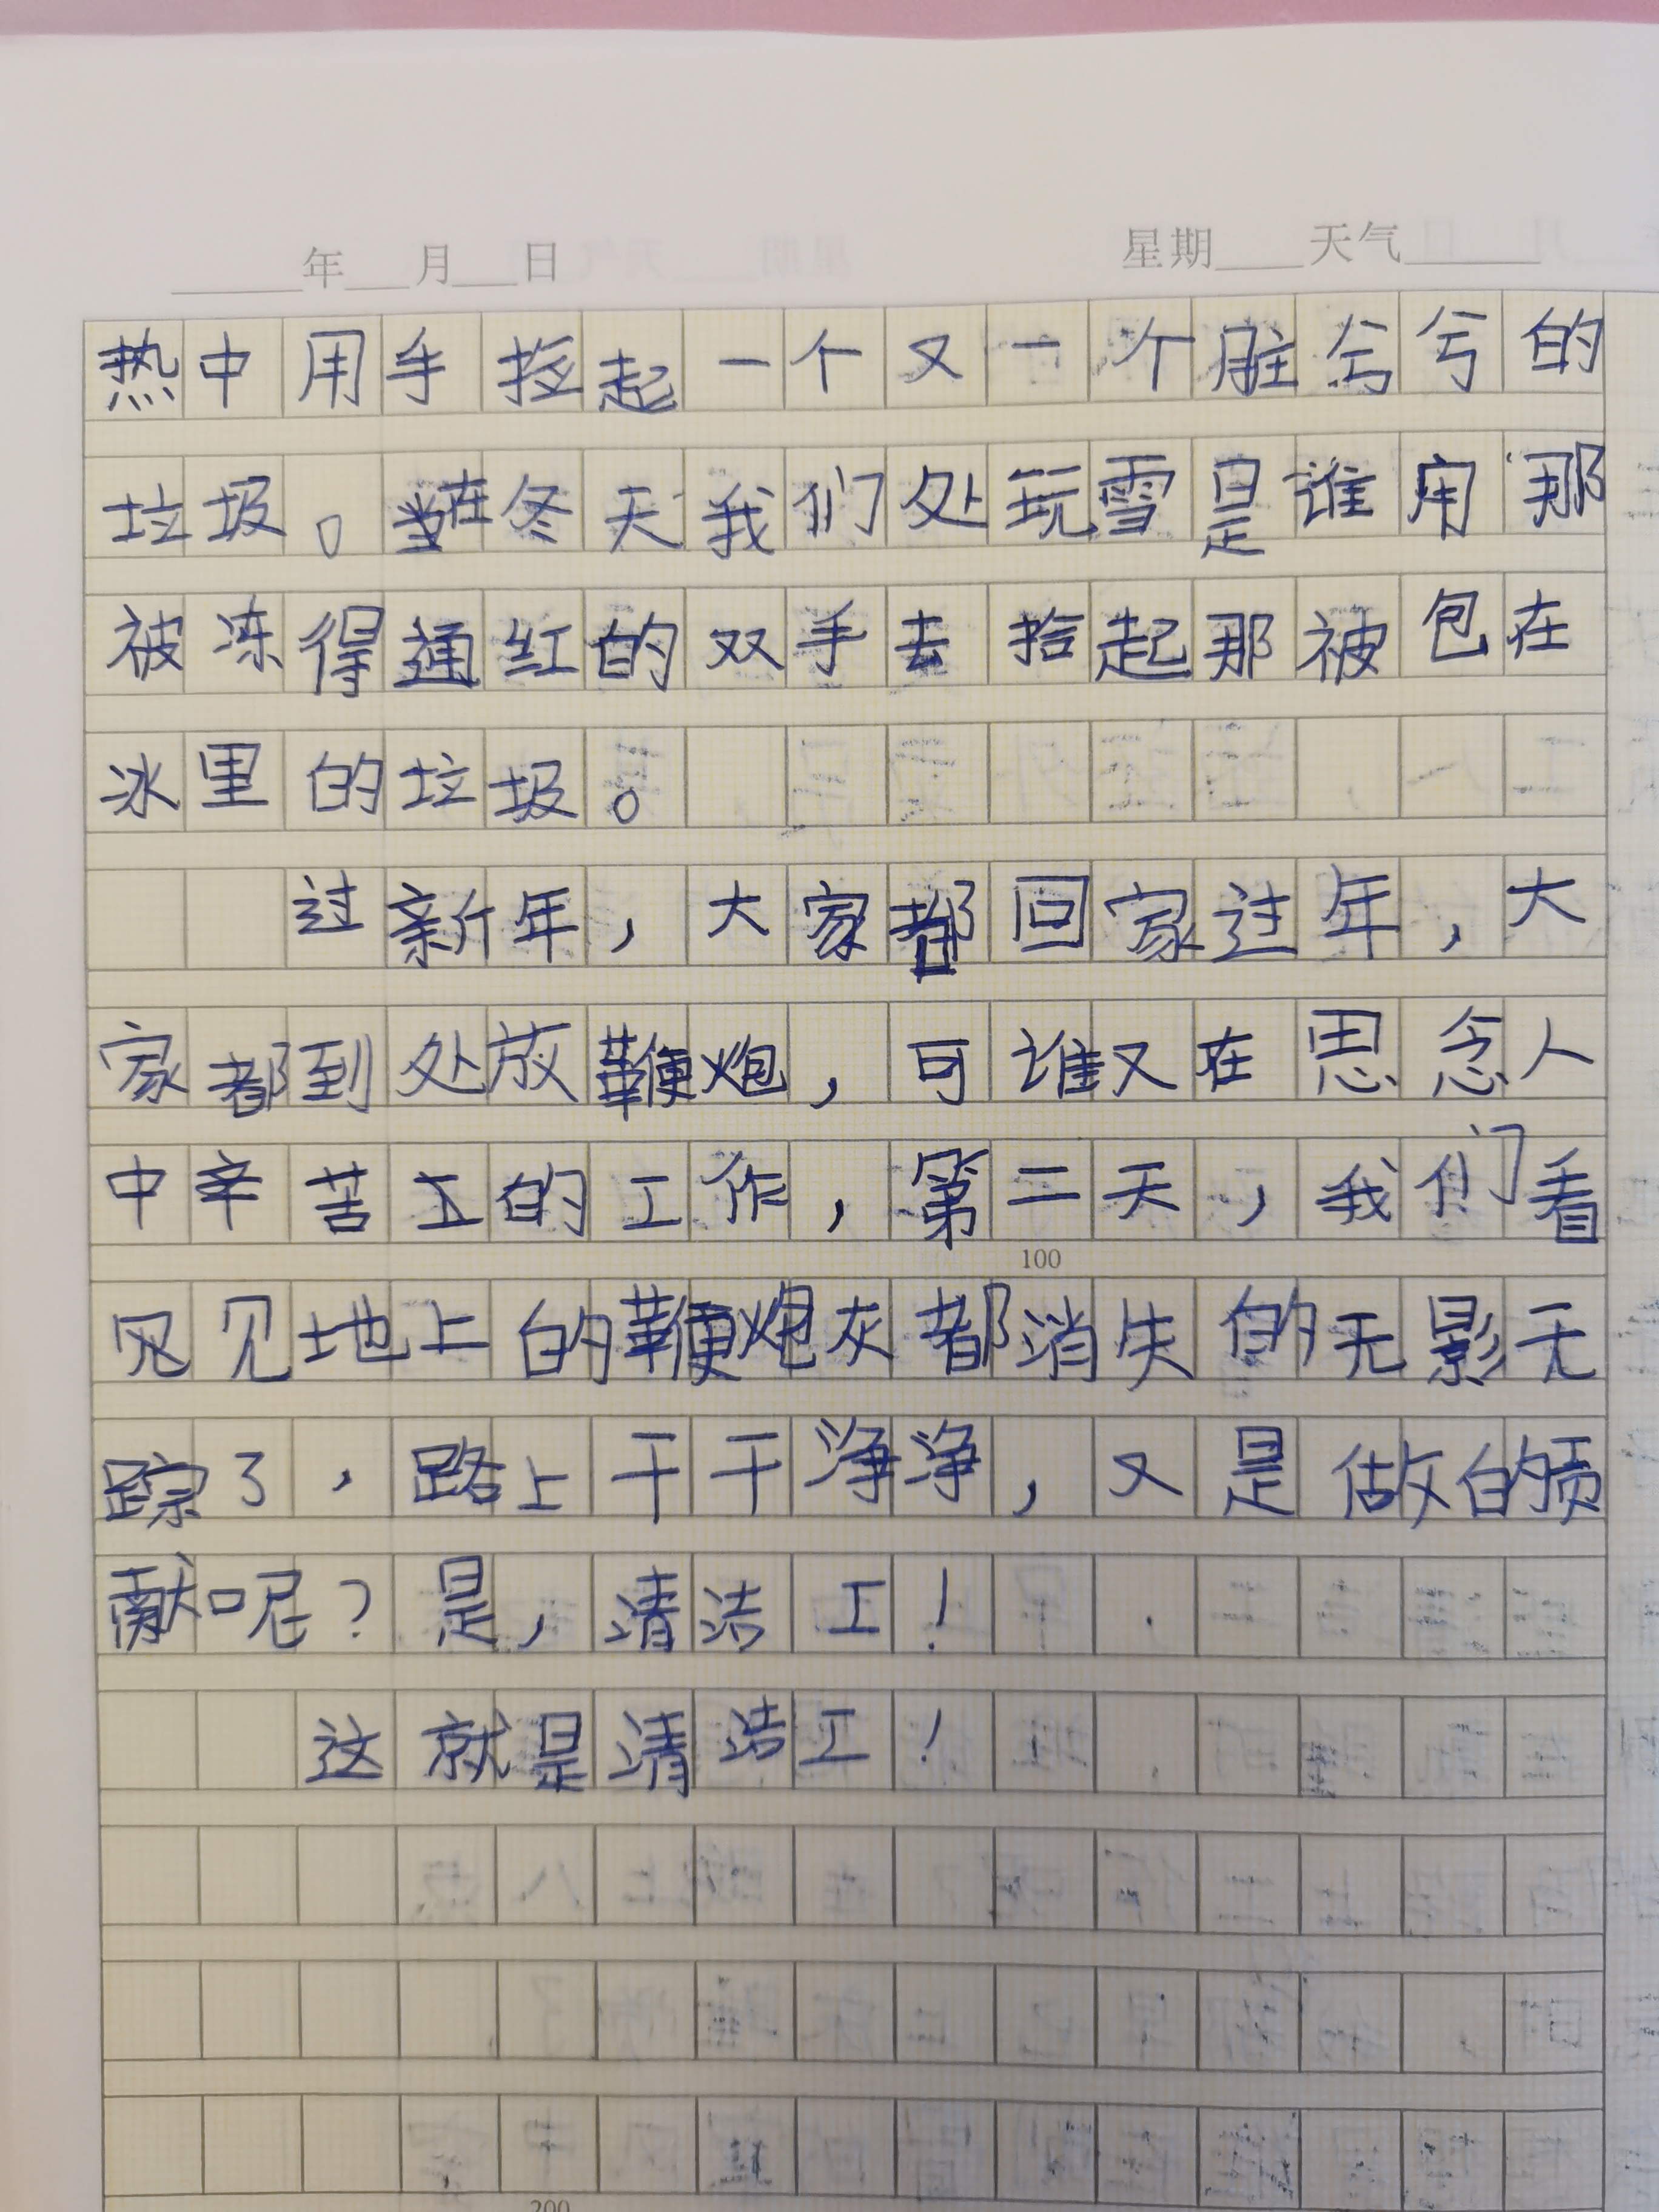 年 月 日 星期 天气
热中用手捡起一个又一个脏兮兮的
垃圾。当在冬天我们处玩雪是谁用那
被冻得通红的双手去拾起那被包在
冰里的垃圾。
过新年,大家都回家过年,大
家都到处放鞭炮,可谁又在思念人
中辛苦工的工作,第二天,我们看
见见地上的鞭炮灰都消失的无影无
踪了,路上干干净净,又是做的贡
献呢?是,清洁工!
100
这就是清洁工!
200